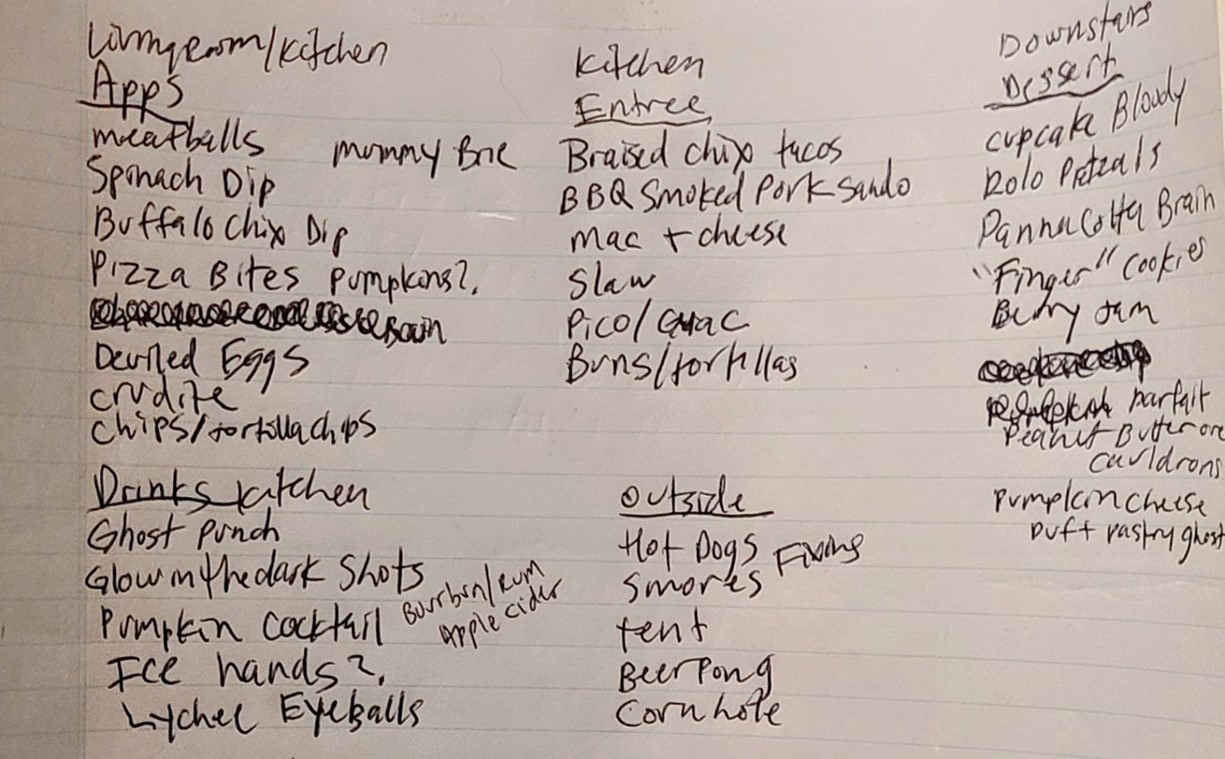 Livingroom/Kitchen
Apps
meatballs mummy Brie
Spinach Dip
Buffalo Chix Dip
Pizza Bites pumpkins?
Deviled Eggs
crudite
chips/tortilla chips
Drinks kitchen
Ghost punch
Glow in the dark Shots
Pumpkin cocktail Bourbon/Rum
Apple cider
Ice hands?
Lychee Eyeballs
Kitchen
Entree
Braised chix tacos
BBQ Smoked Pork Sando
Mac + cheese
Slaw
Pico/Guac
Buns/tortillas
Outside
Hot Dogs Fixings
Smores
tent
Beer Pong
Cornhole
Downstairs
Dessert
cupcake Bloody
Rolo Pretzals
Panna Cotta Brain
"Finger" Cookies
Berry Jam
parfait
Peanut Butter ore
cauldrons
Pumpkin cheese
puff pastry ghost